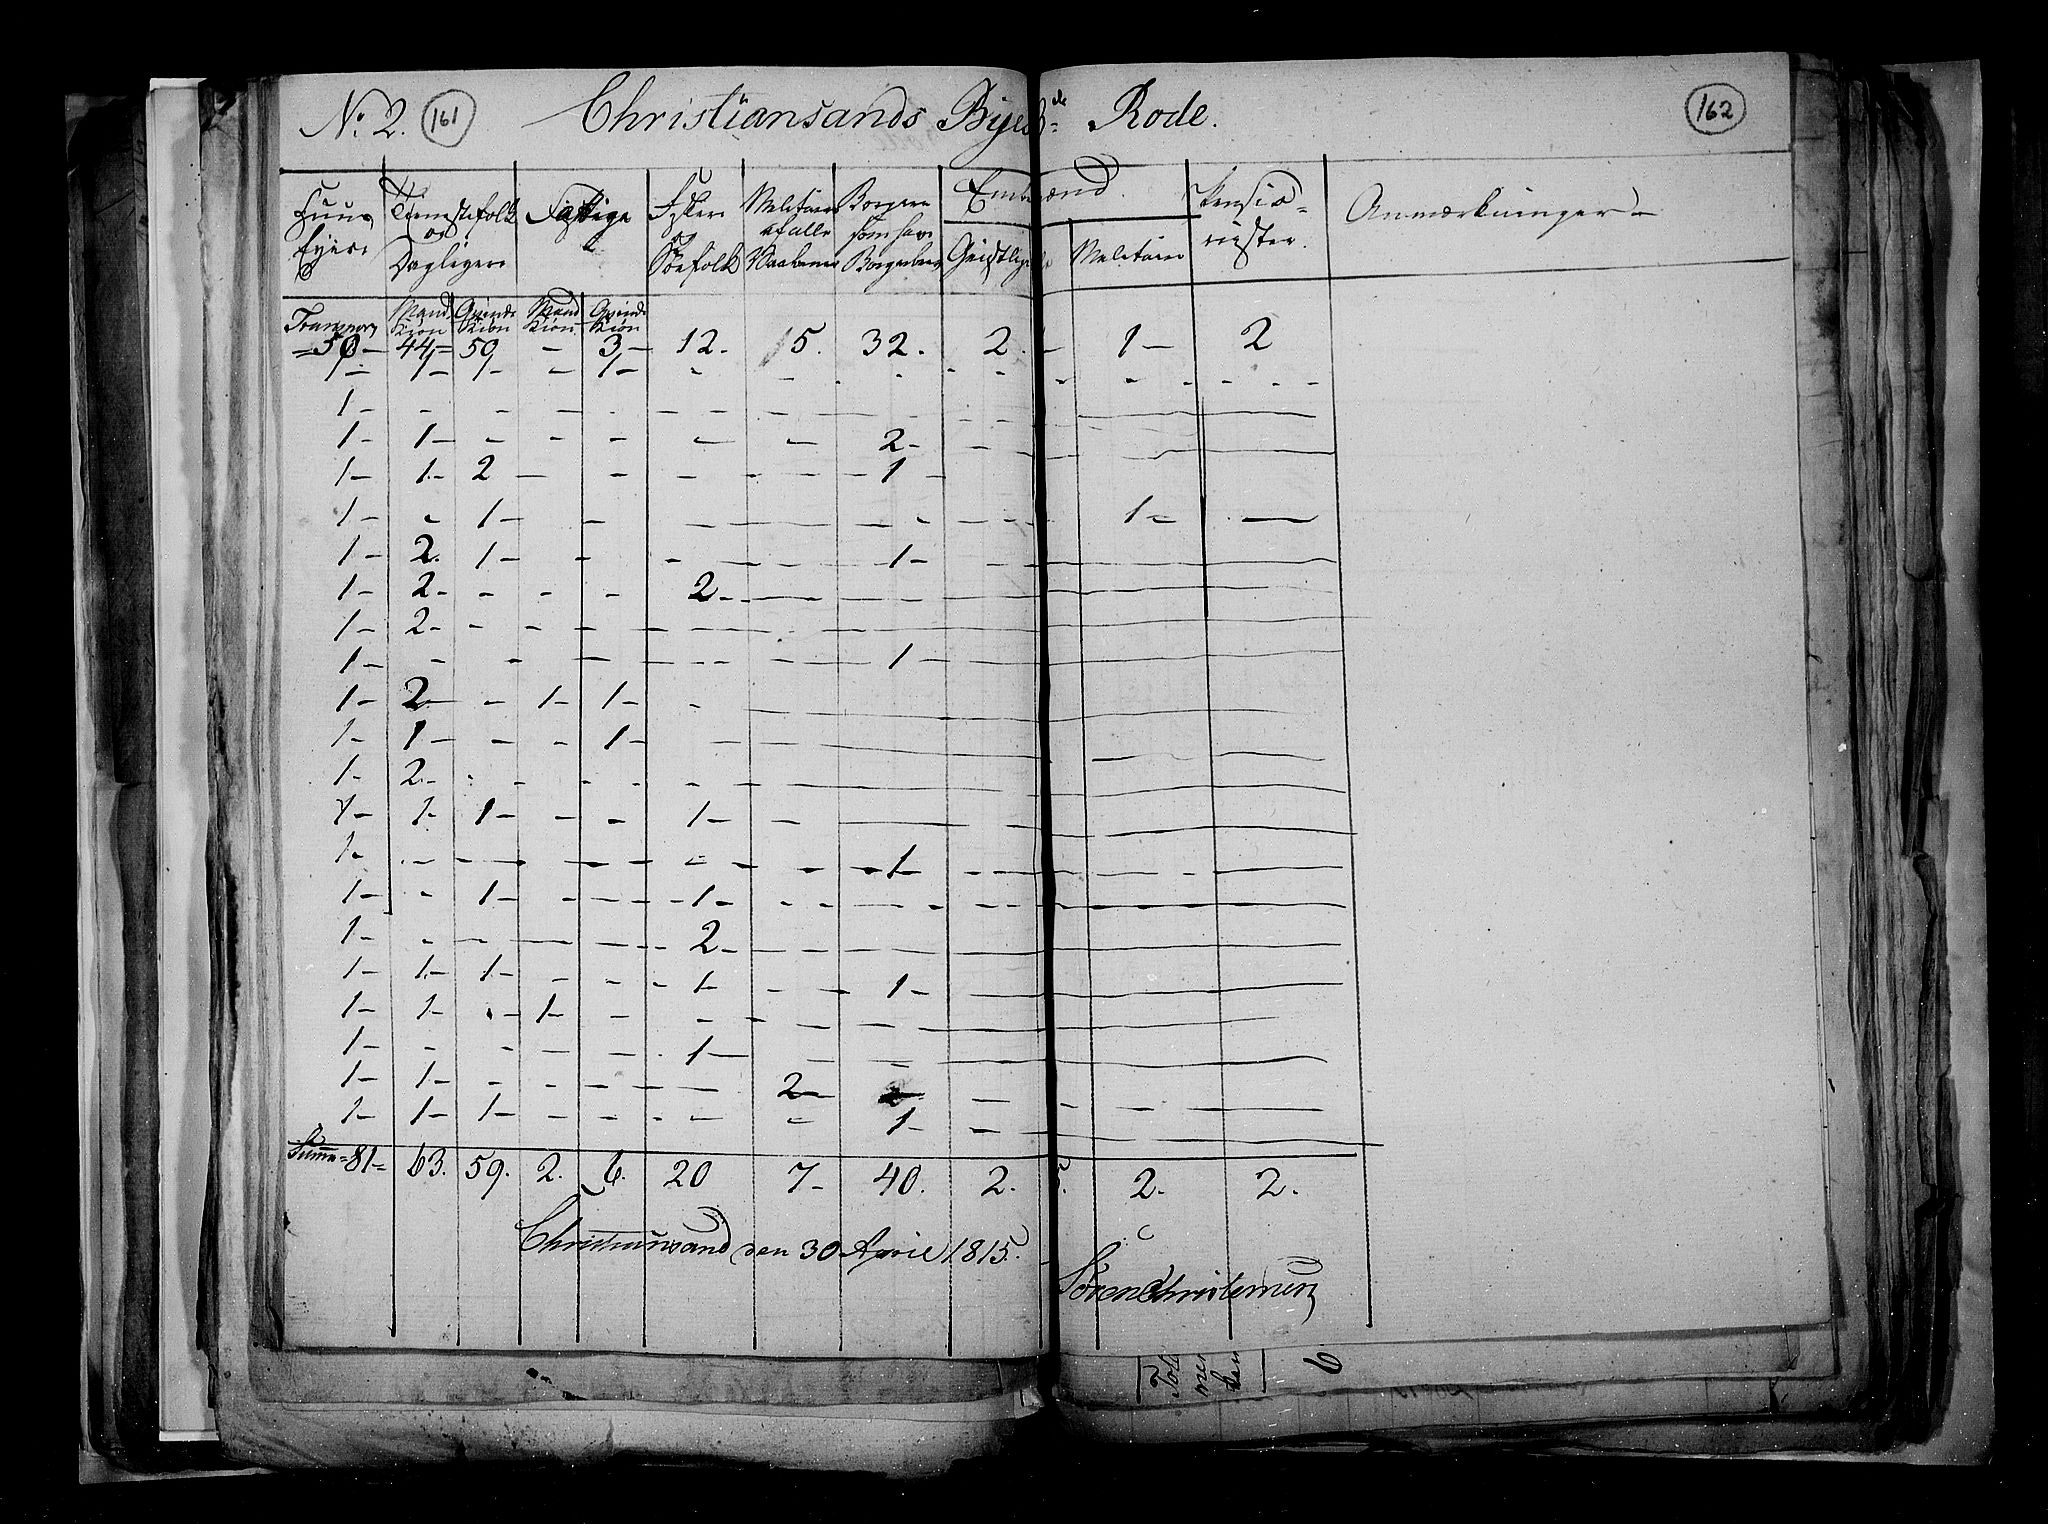 No. 2. 161 Christiansands Byes 8de Rode. 162
Huus Eyere | Tienestefolk og Dagleyere | Fattige | Fiskere og Söefolk | Militaire af alle Vaabener | Borgere som have Borgerbrev | Embedsmænd. | Pensio-nister. | Anmærkninger
Geistlige | Militaire
Transport | Mand Kiön | Qvinde Kiön | Mand Kiön | Qvinde Kiön
50 - | 44 - | 50 | - | 3 - | 12. | 5. | 32. | 2. - | 1 - | 2
1 - | 1 - | 1 - | - | 1 - | - | - | - | - | - | -
1 - | - | - | - | - | - | - | - | - | - | -
1 - | 1 - | - | - | - | - | - | 2 - | - | - | -
1 - | 1 - | 2 | - | - | - | - | 1 - | - | - | -
1 - | - | 1 - | - | - | - | - | - | - | 1 - | -
1 - | 2. | 1 - | - | - | - | - | 1 - | - | - | -
1 - | 2 - | - | - | - | 2 - | - | - | - | - | -
1 - | 2 - | - | - | - | - | - | - | - | - | -
1 - | - | - | - | - | - | - | 1 - | - | - | -
1 - | 2 - | - | 1 - | 1 - | - | - | - | - | - | -
1 - | 1 - | - | - | 1 - | - | - | - | - | - | -
1 - | 2 - | - | - | - | - | - | - | - | - | -
1 - | 1 - | 1 - | - | - | 1 - | - | - | - | - | -
1 - | - | - | - | - | - | - | 1 - | - | - | -
1 - | - | 1 - | - | - | 1 - | - | - | - | - | -
1 - | - | - | - | - | 2 - | - | - | - | - | -
1 - | 1 - | 1 - | - | - | 1 - | - | 1 - | - | - | -
1 - | 1 - | - | 1 - | - | - | - | - | - | - | -
1 - | - | - | - | - | 1 - | - | - | - | - | -
1 - | 1 - | - | - | - | - | 2 - | - | - | - | -
1 - | 1 - | 1 - | - | - | - | - | 1 - | - | - | -
Summa = 81 = | 63. | 59. | 2. | 6. | 20 | 7 - | 40. | 2. | 2. | 2.
Christiansand den 30 April 1815.
Sören Christensen